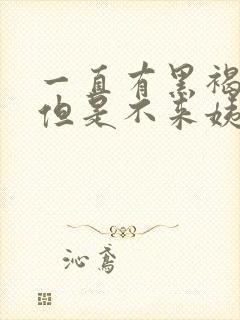 一直有黑褐
但是不来姨
沁鸢